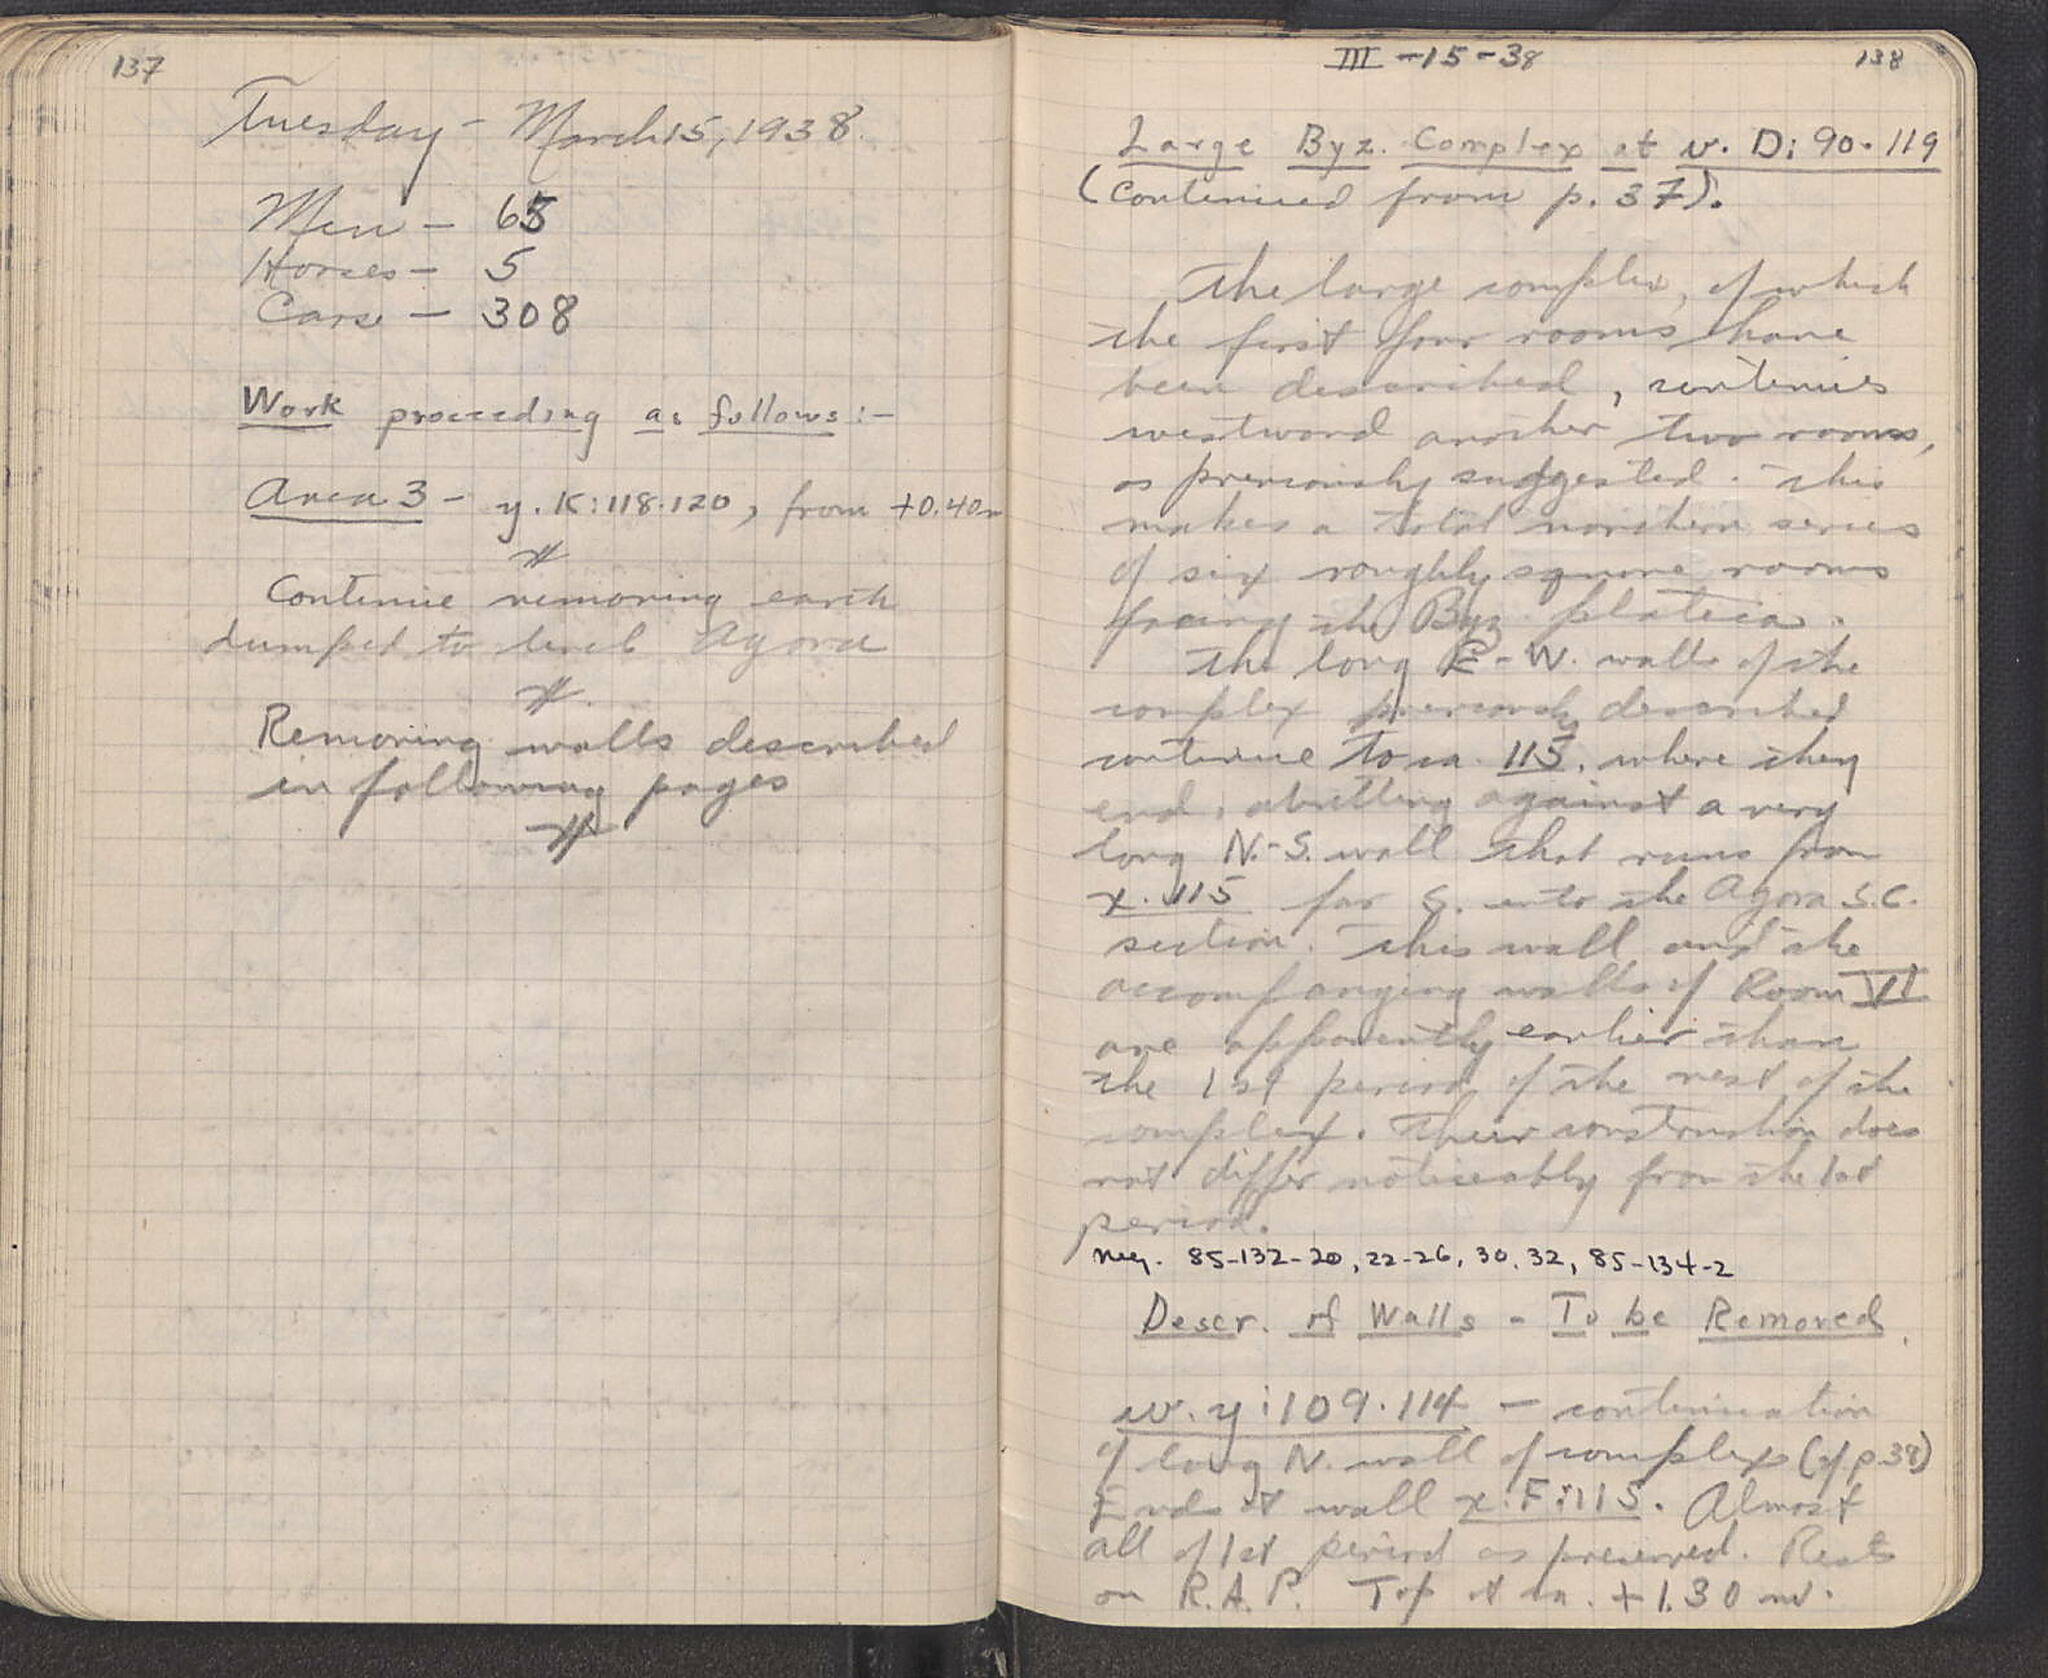 137
Tuesday - March 15, 1938.
Men - 65
Horses - 5
Cars - 308
Work proceeding as follows:-
Area 3 - y.K:118.120, from +0.40m
Continue removing earth
dumped to level Agora
Removing walls described
in following pages
III -15-38
138
Large Byz. Complex at v. D: 90.119
(Continued from p. 37).
The large complex, of which
the first four rooms have
been described, continues
westward another two rooms,
as previously suggested. This
makes a total northern series
of six roughly square rooms
facing the Byz. plateia.
The long E-W. walls of the
complex previously described
continue to ca. 115, where they
end, abutting against a very
long N.-S. wall that runs from
x. 115 far S. into the Agora S.C.
section. This wall and the
accompanying walls of Room VI
are apparently earlier than
the 1st period of the rest of the
complex. Their construction does
not differ noticeably from the 1st
period.
Neg. 85-132-20, 22-26, 30, 32, 85-134-2
Descr. of Walls - To be Removed.
w. y:109.114 - continuation
of long N. wall of complex (cf. p. 38)
Ends at wall x.F:115. Almost
all of 1st period as preserved. Rests
on R.A.P. Top at ca. +1.30 m.